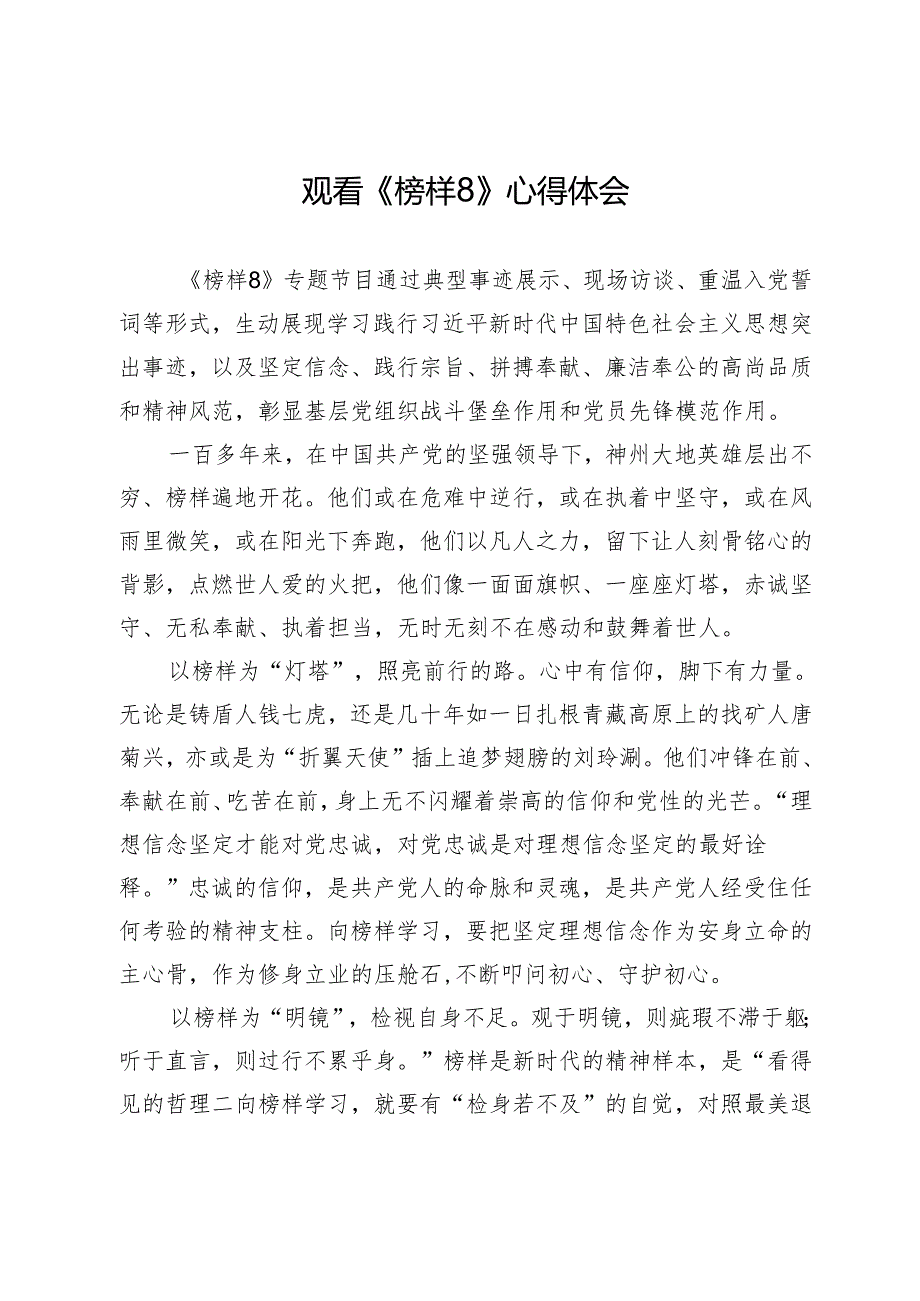 观看《榜样8》心得体会
《榜样8》专题节目通过典型事迹展示、现场访谈、重温入党誓
词等形式，生动展现学习践行习近平新时代中国特色社会主义思想突
出事迹，以及坚定信念、践行宗旨、拼搏奉献、廉洁奉公的高尚品质
和精神风范，彰显基层党组织战斗堡垒作用和党员先锋模范作用。
一百多年来，在中国共产党的坚强领导下，神州大地英雄层出不
穷、榜样遍地开花。他们或在危难中逆行，或在执着中坚守，或在风
雨里微笑，或在阳光下奔跑，他们以凡人之力，留下让人刻骨铭心的
背影，点燃世人爱的火把，他们像一面面旗帜、一座座灯塔，赤诚坚
守、无私奉献、执着担当，无时无刻不在感动和鼓舞着世人。
以榜样为“灯塔”，照亮前行的路。心中有信仰，脚下有力量。
无论是铸盾人钱七虎，还是几十年如一日扎根青藏高原上的找矿人唐
菊兴，亦或是为“折翼天使”插上追梦翅膀的刘玲涮。他们冲锋在前、
奉献在前、吃苦在前，身上无不闪耀着崇高的信仰和党性的光芒。“理
想信念坚定才能对党忠诚，对党忠诚是对理想信念坚定的最好诠
释。”忠诚的信仰，是共产党人的命脉和灵魂，是共产党人经受住任
何考验的精神支柱。向榜样学习，要把坚定理想信念作为安身立命的
主心骨，作为修身立业的压舱石,不断叩问初心、守护初心。
以榜样为“明镜”，检视自身不足。观于明镜，则疵瑕不滞于躯;
听于直言，则过行不累乎身。”榜样是新时代的精神样本，是“看得
见的哲理二向榜样学习，就要有“检身若不及”的自觉，对照最美退